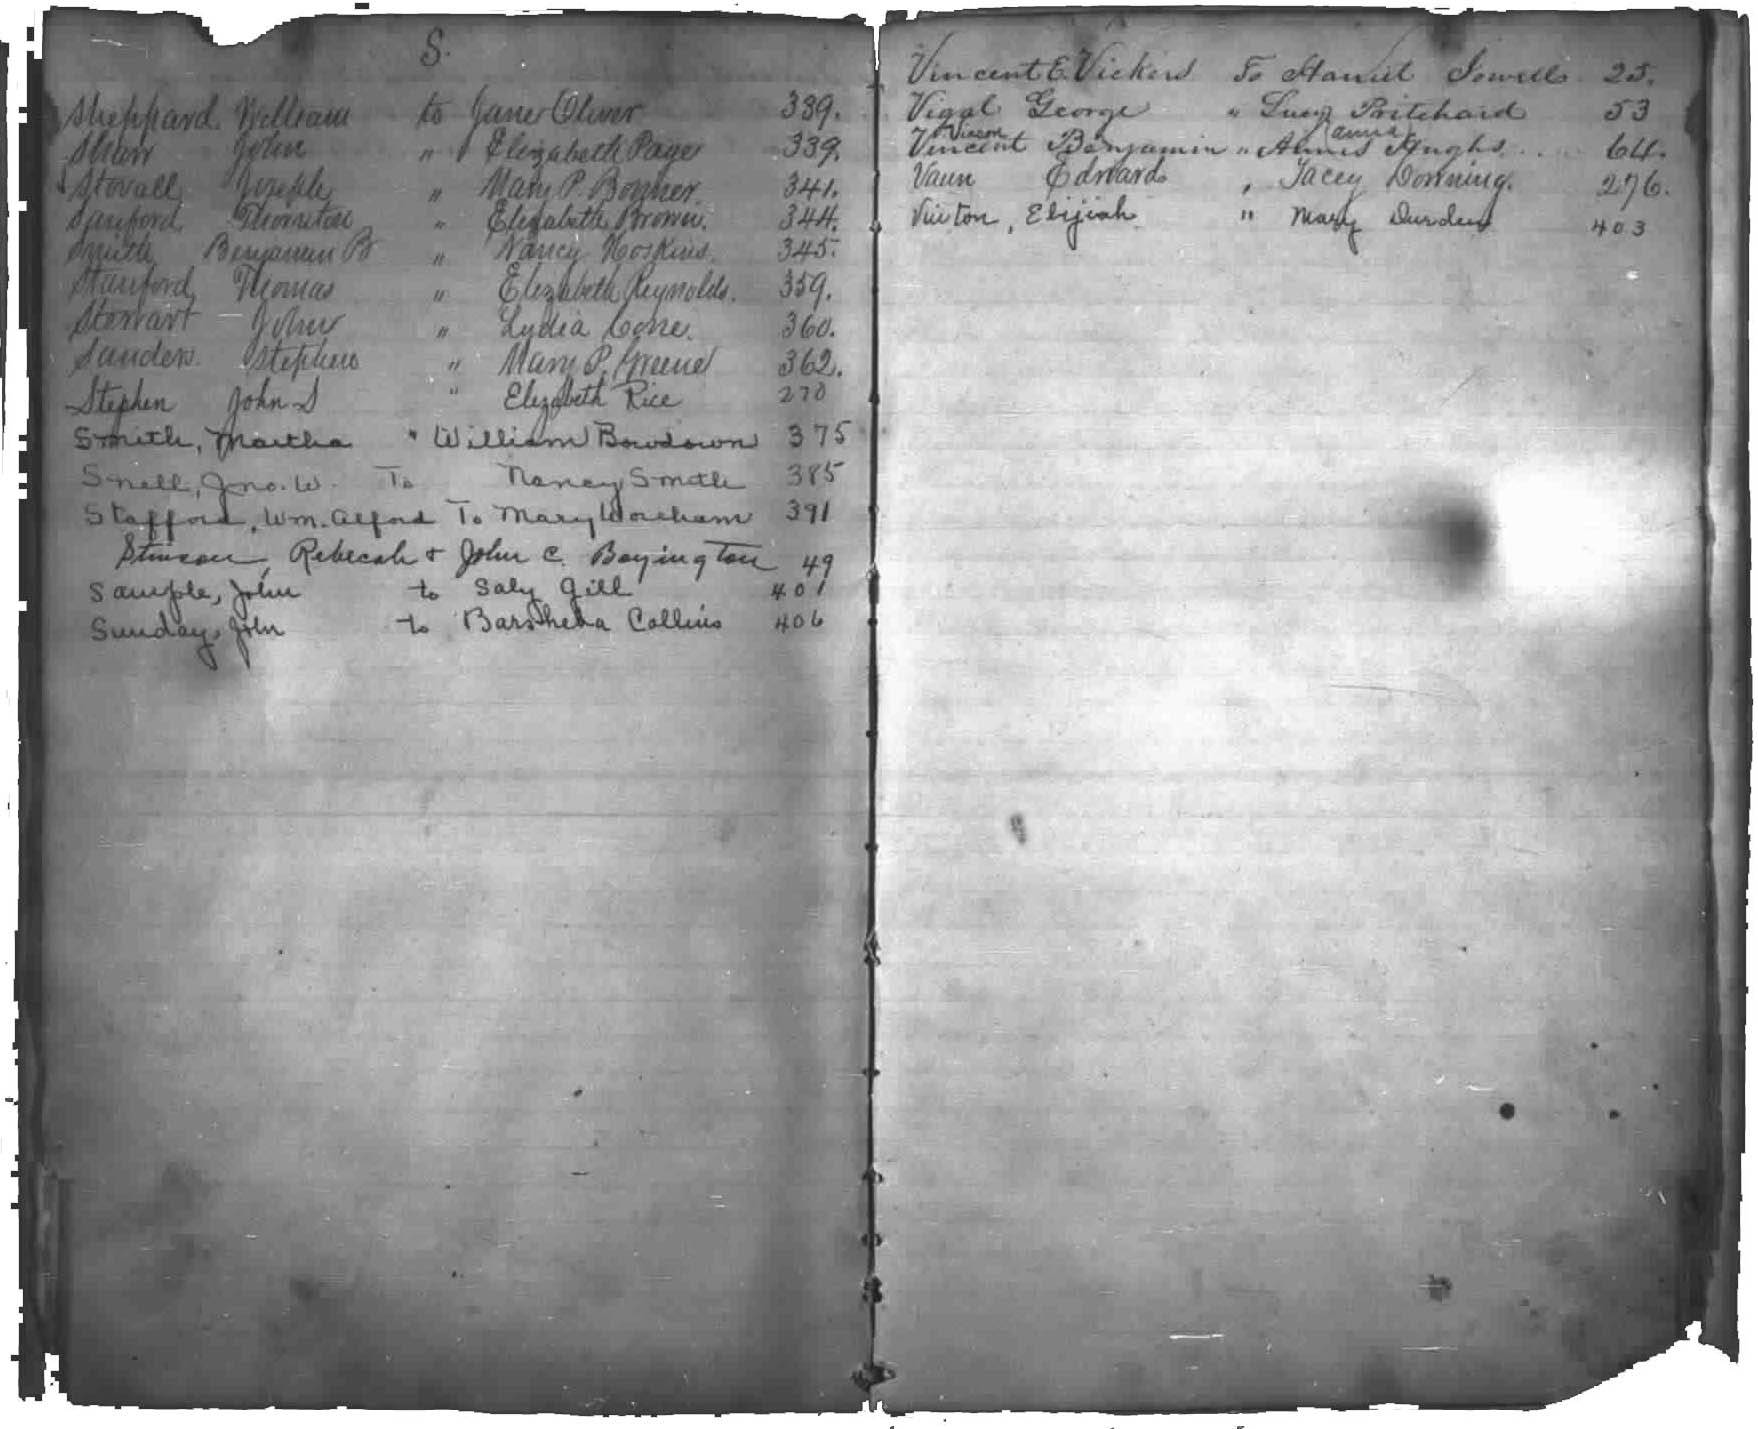 S.
Sheppard William to Jane Oliver 339.
Shaw John " Elizabeth Page 339.
Stovall Joseph " Mary P. Bonner. 341.
Sanford Thornton " Elizabeth Brown. 344.
Smith Benjamin B " Nancy Hoskins. 345.
Stanford Thomas " Elizabeth Reynolds. 359.
Stewart John " Lydia Cone. 360.
Sanders. Stephen " Mary P. Greene 362.
Stephen John S " Elizabeth Rice 270
Smith, Martha " William Bowdown 375
Snell, Jno. W. To Nancy Smith 385
Stafford, Wm. Alford To Mary Worcham 391
Stinson, Rebecah + John C. Boyington 49
Sample, John to Saly Gill 401
Sunday, John to Barsheba Collins 406
Vincent E. Vickers To Harriet Sowell 25.
Vigal George " Lucy Pritchard 53
Vinson Anna
Vincent Benjamin " Annis Hughs. 64.
Vaun Edwards " Tacey Downing. 276.
Vinton, Elijiah " Mary Durden 403